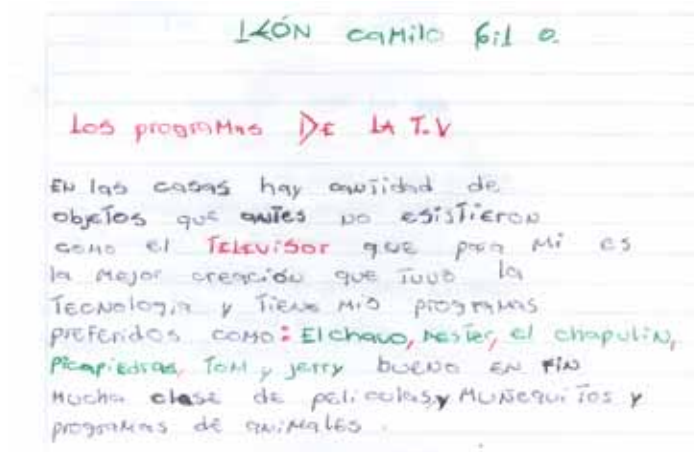 LEÓN camilo Gil O.
Los programas DE LA T.V
EN las casas hay cantidad de
objetos que antes no esistieron
como el TELEVISOR que para mi es
la mejor creación que tuvo la
Tecnologia y tiene mis programas
preferidos como: El chavo, , el chapulin,
Picapiedras, Tom y jerry bueno EN FIN
mucha clase de peliculas, y muñequitos y
programas de animales.